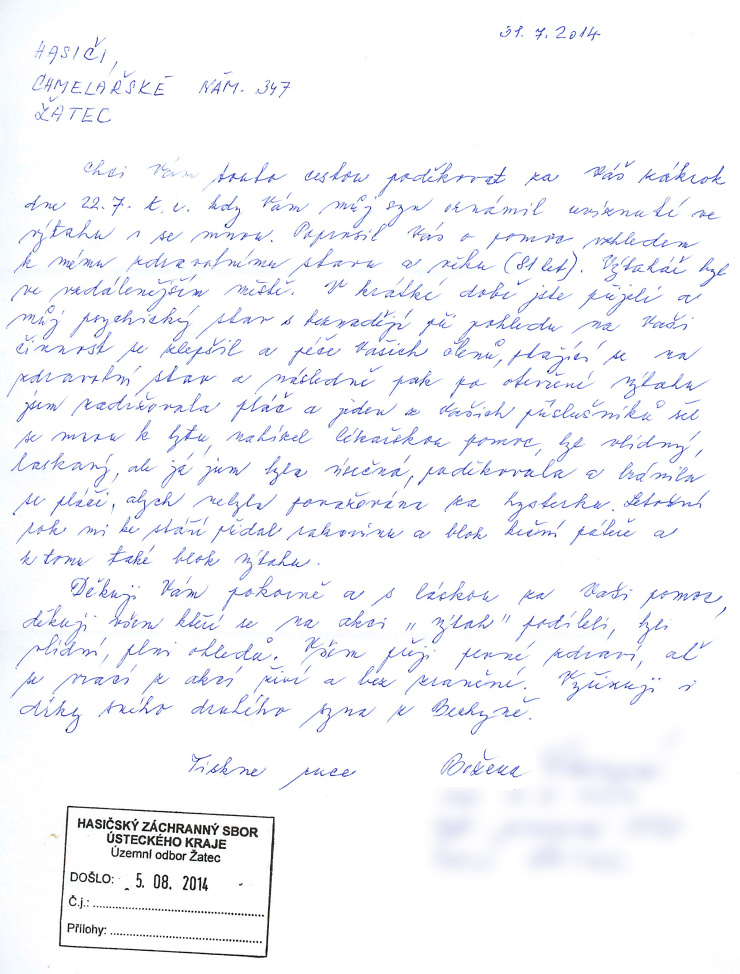 31. 7. 2014
HASIČI,
CHMELAŘSKÉ NÁM. 347
ŽATEC
Chci Vám touto cestou poděkovat za Váš zákrok
dne 22.7. t. r. kdy Vám můj syn oznámil uvíznutí ve
výtahu i se mnou. Poprosil Vás o pomoc vzhledem
k mému zdravotnímu stavu a věku (81 let). Výtahář byl
ve vzdálenějším městě. V krátké době jste přijeli a
můj psychický stav s beznadějí při pohledu na Vaši
činnost se zlepšil a péče Vašich členů, ptající se na
zdravotní stav a následně pak po otevření výtahu
jsem zadržovala pláč a jeden z Vašich příslušníků šel
se mnou k bytu, nabízel lékařskou pomoc, byl vlídný,
laskavý, ale já jsem byla úsečná, poděkovala a bránila
se pláči, abych nebyla považována za hysterku. Letošní
rok mi ke stáří přidal rakovinu a blok krční páteře a
k tomu také blok výtahu.
Děkuji Vám pokorně a s láskou za Vaši pomoc,
děkuji všem kteří se na akci „výtah" podíleli, byli
vlídní, plni ohledů. Všem přeji pevné zdraví, ať
se vrací z akcí živí a bez zranění. Vyřizuji i
díky svého druhého syna z Bechyně.
Tiskne ruce Božena
HASIČSKÝ ZÁCHRANNÝ SBOR
ÚSTECKÉHO KRAJE
Územní odbor Žatec
DOŠLO: 5. 08. 2014
Č.j.:
Přílohy: